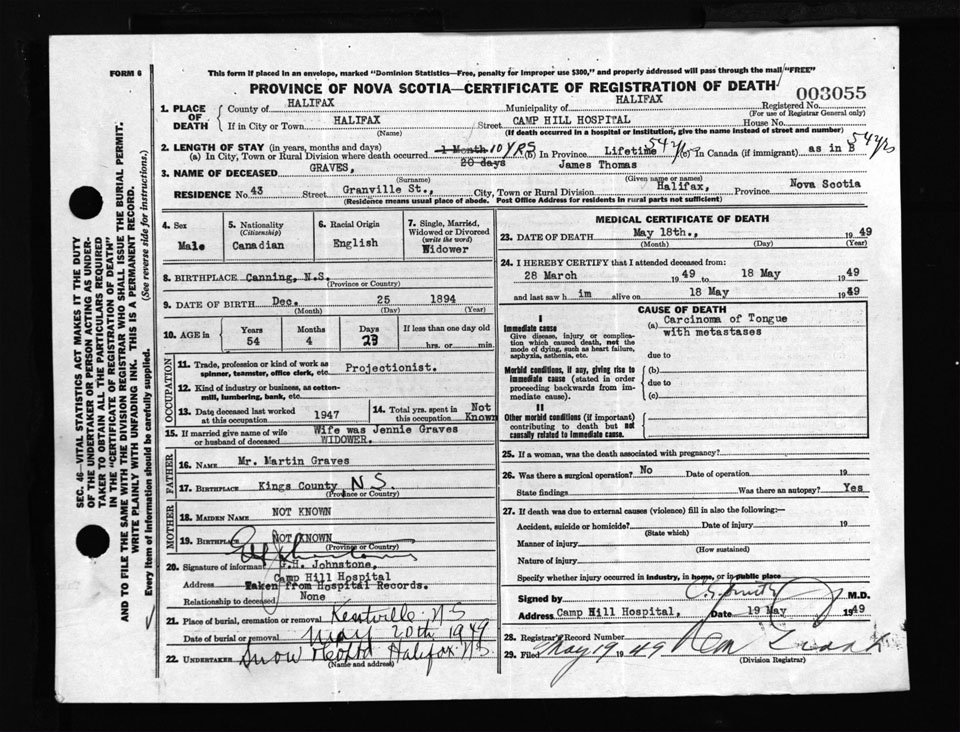 FORM 6
This form if placed in an envelope, marked "Dominion Statistics—Free, penalty for improper use $300," and properly addressed will pass through the mail "FREE"
PROVINCE OF NOVA SCOTIA—CERTIFICATE OF REGISTRATION OF DEATH
003055
1. PLACE OF DEATH
County of HALIFAX Municipality of HALIFAX Registered No.
(For use of Registrar General only)
If in City or Town HALIFAX Street CAMP HILL HOSPITAL House No.
(Name) (If death occurred in a hospital or institution, give the name instead of street and number)
2. LENGTH OF STAY (in years, months and days)
(a) In City, Town or Rural Division where death occurred 1 Month 20 days 10 YRS (b) In Province Lifetime 54 yrs (c) In Canada (if immigrant) as in B 54 yrs
3. NAME OF DECEASED GRAVES, James Thomas
(Surname) (Given name or names)
RESIDENCE No. 43 Street Granville St., City, Town or Rural Division Halifax, Province Nova Scotia
(Residence means usual place of abode. Post Office Address for residents in rural parts not sufficient)
4. Sex
Male
5. Nationality
(Citizenship)
Canadian
6. Racial Origin
English
7. Single, Married, Widowed or Divorced
(write the word)
Widower
8. BIRTHPLACE Canning, N.S.
(Province or Country)
9. DATE OF BIRTH Dec. 25 1894
(Month) (Day) (Year)
10. AGE in
Years Months Days If less than one day old
54 4 23 hrs. or min.
OCCUPATION
11. Trade, profession or kind of work as spinner, teamster, office clerk, etc. Projectionist.
12. Kind of industry or business, as cotton-mill, lumbering, bank, etc.
13. Date deceased last worked at this occupation 1947
14. Total yrs. spent in this occupation Not Known
15. If married give name of wife or husband of deceased Wife was Jennie Graves
WIDOWER.
FATHER
16. NAME Mr. Martin Graves
17. BIRTHPLACE Kings County N.S.
(Province or Country)
MOTHER
18. MAIDEN NAME NOT KNOWN
19. BIRTHPLACE NOT KNOWN
(Province or Country)
20. Signature of informant G.H. Johnstone,
Camp Hill Hospital
Address Taken from Hospital Records.
Relationship to deceased None
21. Place of burial, cremation or removal Kentville N S
Date of burial or removal May 20th 1949
22. UNDERTAKER Snow Halifax N.S.
(Name and address)
MEDICAL CERTIFICATE OF DEATH
23. DATE OF DEATH May 18th., 1949
(Month) (Day) (Year)
24. I HEREBY CERTIFY that I attended deceased from:
28 March 1949 to 18 May 1949
and last saw him alive on 18 May 1949
CAUSE OF DEATH
I
Immediate cause
Give disease, injury or complication which caused death, not the mode of dying, such as heart failure, asphyxia, asthenia, etc.
(a) Carcinoma of Tongue
with metastases
due to
Morbid conditions, if any, giving rise to immediate cause (stated in order proceeding backwards from immediate cause).
(b)
due to
(c)
II
Other morbid conditions (if important) contributing to death but not causally related to immediate cause.
25. If a woman, was the death associated with pregnancy?
26. Was there a surgical operation? No Date of operation 19
State findings Was there an autopsy? Yes
27. If death was due to external causes (violence) fill in also the following:—
Accident, suicide or homicide? Date of injury 19
(State which)
Manner of injury
(How sustained)
Nature of injury
Specify whether injury occurred in industry, in home, or in public place
Signed by M.D.
Address Camp Hill Hospital, Date 19 May 1949
28. Registrar's Record Number
29. Filed May 19 1949
(Division Registrar)
SEC. 46—VITAL STATISTICS ACT MAKES IT THE DUTY OF THE UNDERTAKER OR PERSON ACTING AS UNDERTAKER TO OBTAIN ALL THE PARTICULARS REQUIRED IN THE "CERTIFICATE OF REGISTRATION OF DEATH"
AND TO FILE THE SAME WITH THE DIVISION REGISTRAR WHO SHALL ISSUE THE BURIAL PERMIT.
WRITE PLAINLY WITH UNFADING INK. THIS IS A PERMANENT RECORD.
Every item of information should be carefully supplied. (See reverse side for instructions.)